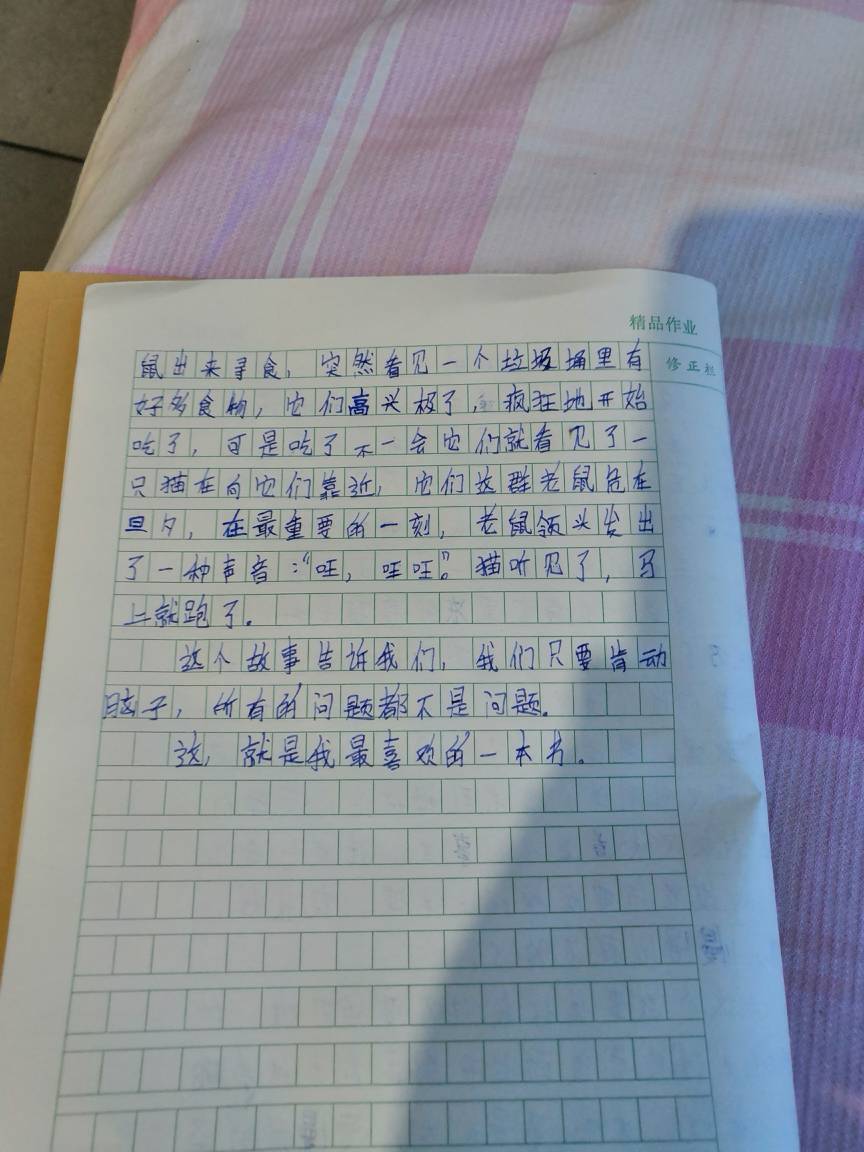 精品作业
修正栏
鼠出来寻食，突然看见一个垃圾桶里有
好多食物，它们高兴极了，疯狂地开始
吃了，可是吃了不一会它们就看见了一
只猫在向它们靠近，它们这群老鼠危在
旦夕，在最重要的一刻，老鼠领头发出
了一种声音：“旺，旺旺”。猫听见了，马
上就跑了。
这个故事告诉我们，我们只要肯动
脑子，所有的问题都不是问题。
这，就是我最喜欢的一本书。